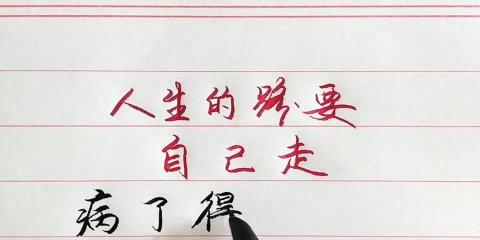 人生的路要
自己走
病了得